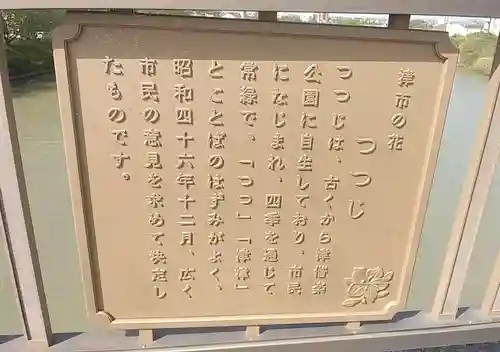 津市の花
つつじ
つつじは、古くから津偕楽
公園に自生しており、市民
になじまれ、四季を通じて
常緑で、「つつ」「津津」
とことばのはずみがよく、
昭和四十六年十二月、広く
市民の意見を求めて決定し
たものです。